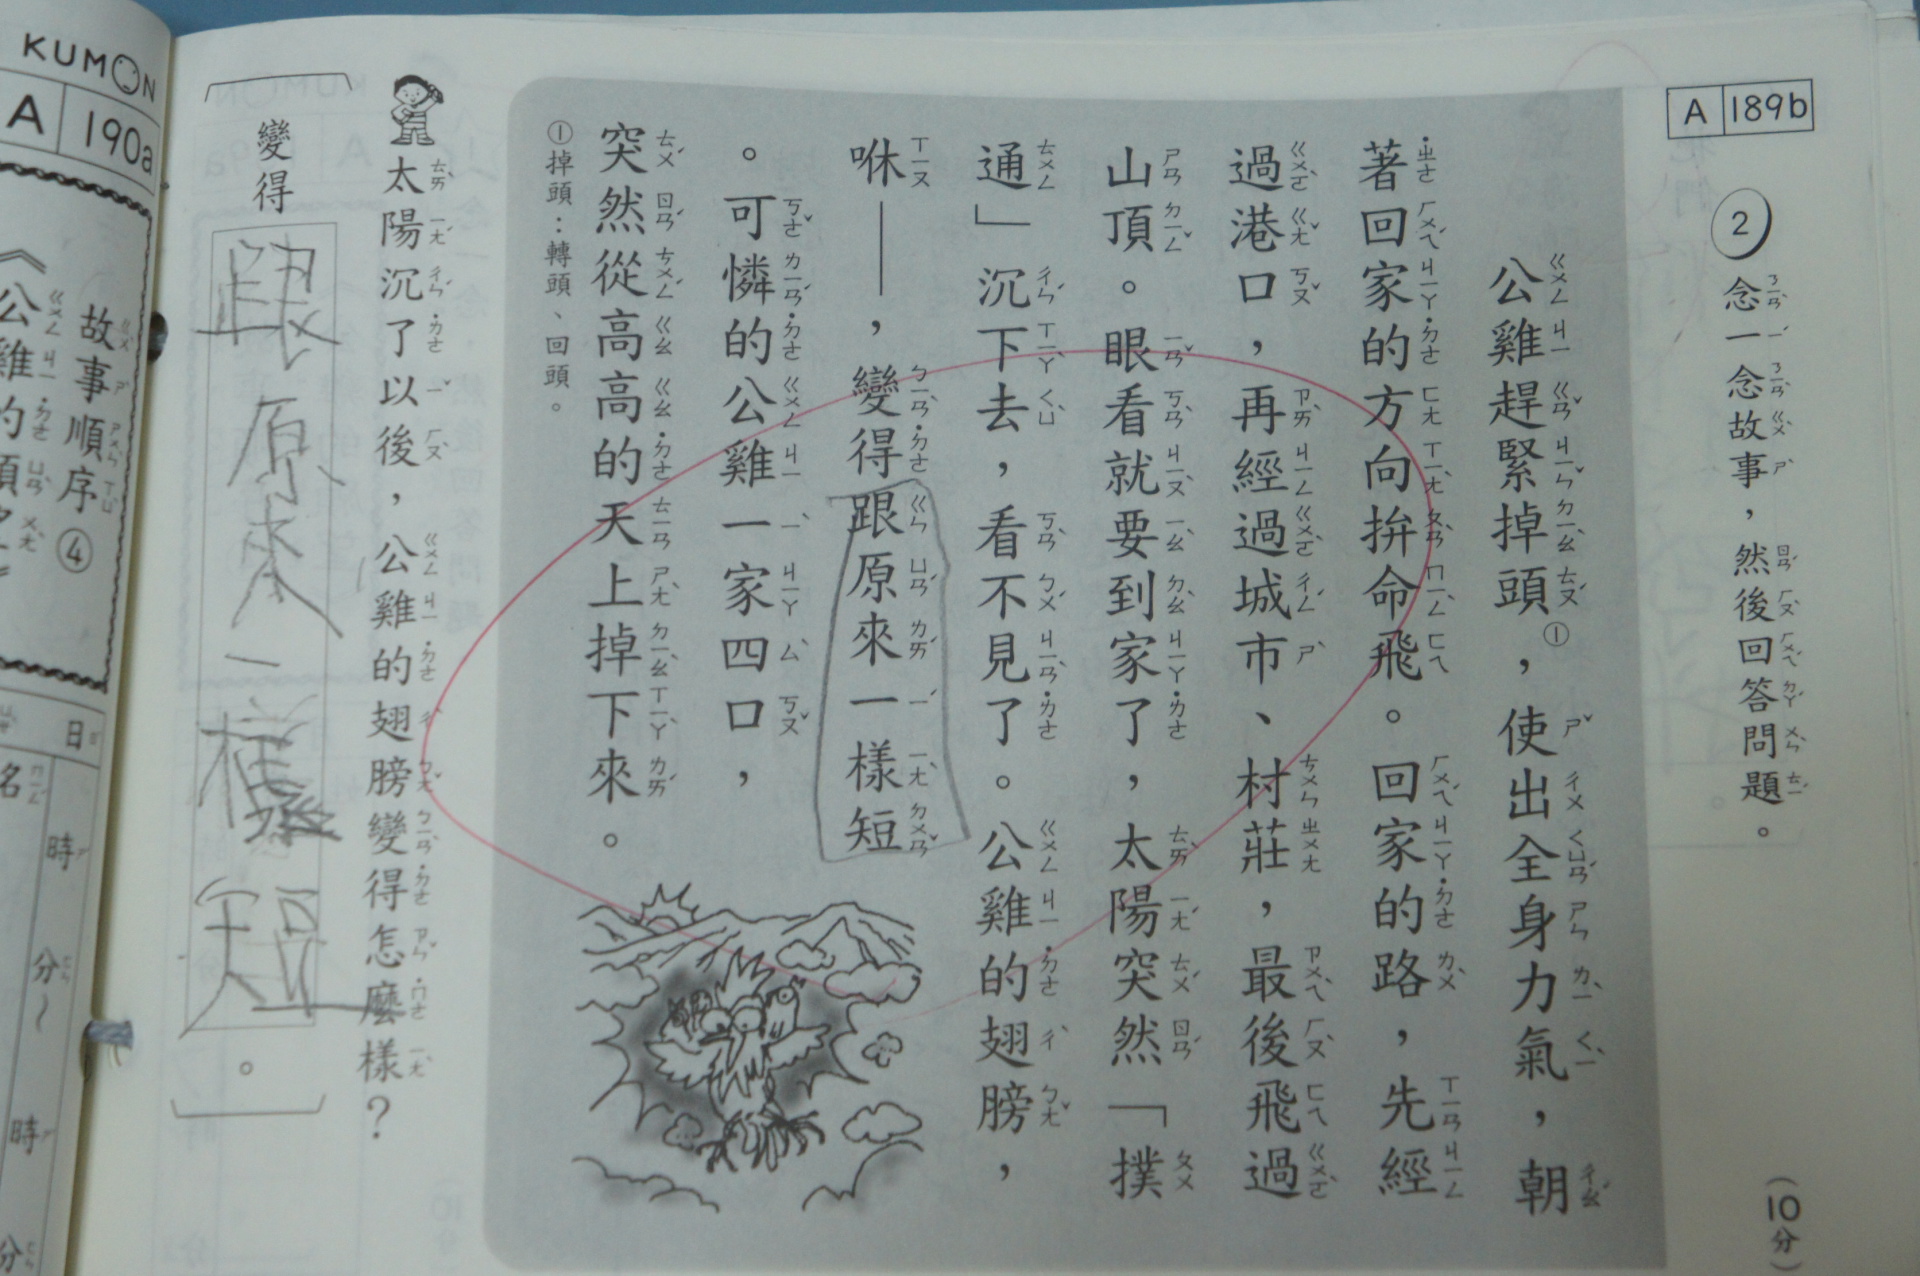 A 189b
② 念一念故事，然後回答問題。
（10分）
公雞趕緊掉頭①，使出全身力氣，朝
著回家的方向拚命飛。回家的路，先經
過港口，再經過城市、村莊，最後飛過
山頂。眼看就要到家了，太陽突然「撲
通」沉下去，看不見了。公雞的翅膀，
咻——，變得跟原來一樣短
。可憐的公雞一家四口，
突然從高高的天上掉下來。
①掉頭：轉頭、回頭。
太陽沉了以後，公雞的翅膀變得怎麼樣？
變得跟原來一樣短。
KUMON
A 190a
故事順序④
《公雞的
日
名
時
分～
時
分